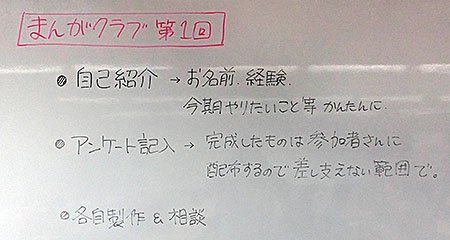 まんがクラブ 第1回
● 自己紹介 → お名前、経験、
今期やりたいこと等 かんたんに。
● アンケート記入 → 完成したものは参加者さんに
配布するので差し支えない範囲で。
● 各自製作 & 相談